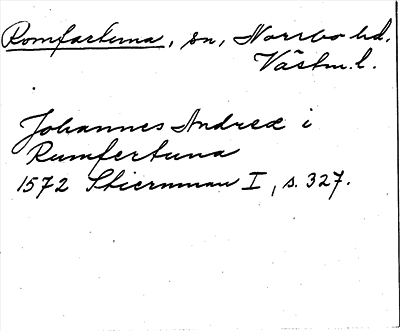 Romfartuna, sn, Norrbo hd.
Västm. l.
Johannes Andreæ i
Rumfertuna
1572 Stiernman I, s. 327.